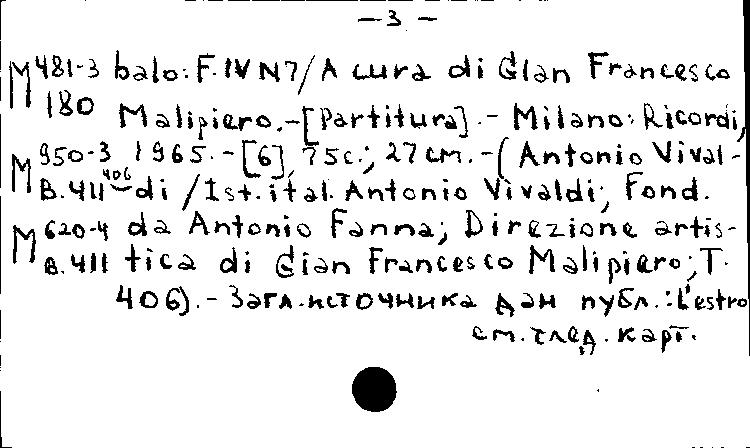 — 3 —
M 481-3 balo: F. IV N7 / A cura di Gian Francesco
180 Malipiero. - [Partitura]. - Milano: Ricordi,
M 950-3 1965. - [6], 75 c.; 27 cm. - (Antonio Vival-
B. 411 406 di / Ist. ital. Antonio Vivaldi; Fond.
M 620-4 da Antonio Fanna; Direzione artis-
B. 411 tica di Gian Francesco Malipiero; T.
406). - Загл. источника дан публ.: L'estro
см. след. карт.